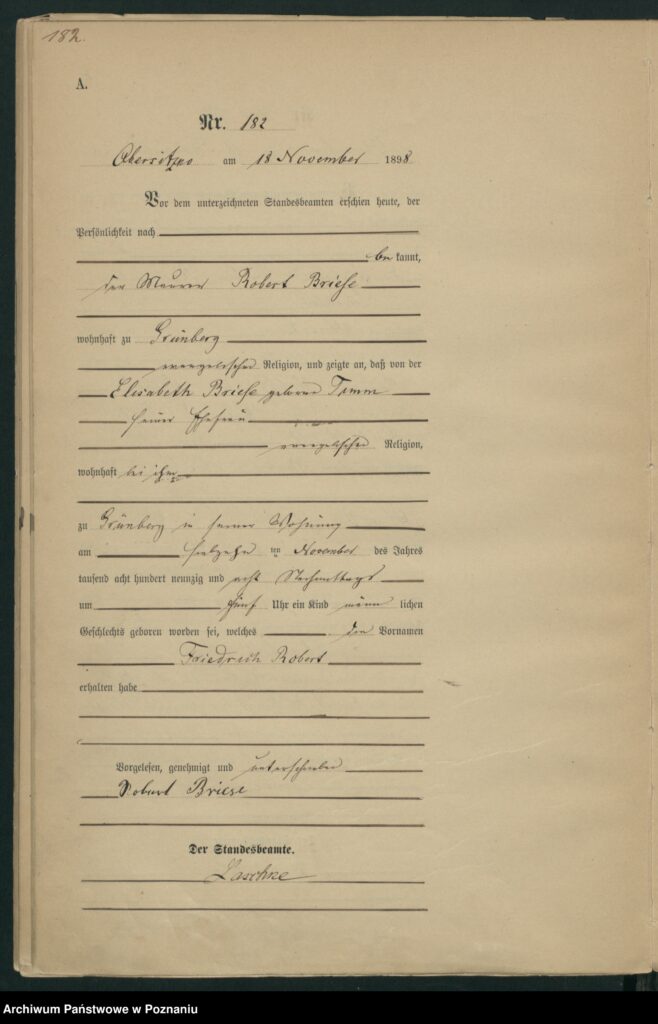 182.
A.
Nr. 182
Obersitzko am 18 November 1898
Vor dem unterzeichneten Standesbeamten erschien heute, der
Persönlichkeit nach
be kannt,
der Maurer Robert Briese
wohnhaft zu Grünberg
evangelischer Religion, und zeigte an, daß von der
Elisabeth Briese geborene Tamm
seiner Ehefrau
evangelischer Religion,
wohnhaft bei ihm
zu Grünberg in seiner Wohnung
am siebzehn ten November des Jahres
tausend acht hundert neunzig und acht Nachmittags
um fünf Uhr ein Kind männ lichen
Geschlechts geboren worden sei, welches die Vornamen
Friedrich Robert
erhalten habe
Vorgelesen, genehmigt und unterschrieben
Robert Briese
Der Standesbeamte.
Laschke
Archiwum Państwowe w Poznaniu